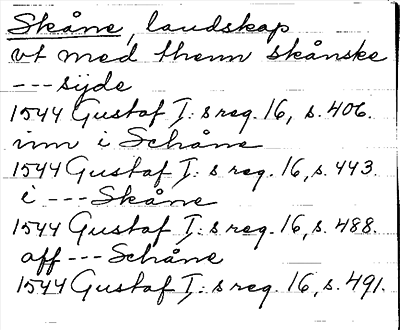 Skåne, landskap
vt med thenn skånske
--- sijde
1544 Gustaf I: s reg. 16, s. 406.
inn i Schåne
1544 Gustaf I: s reg. 16, s. 443.
i --- Skåne
1544 Gustaf I: s reg. 16, s. 488.
aff --- Schåne
1544 Gustaf I: s reg. 16, s. 491.